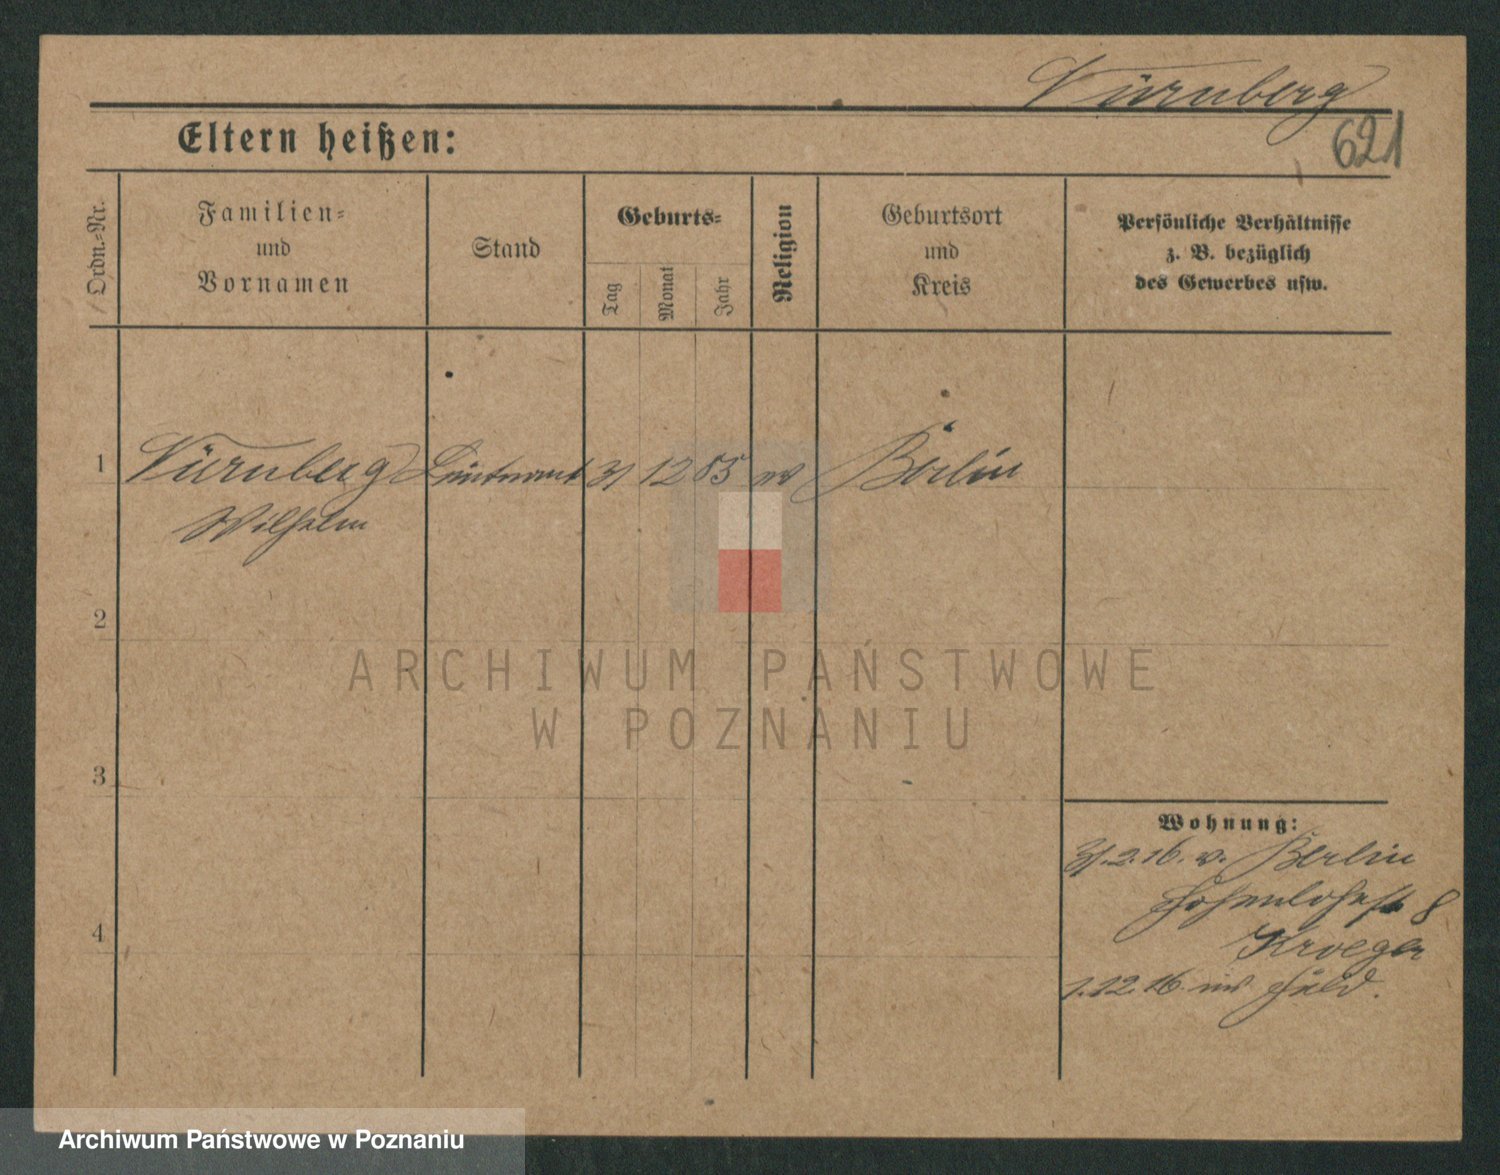 Nürnberg
621
Eltern heißen:
Ordn.-Nr.
Familien-
und
Vornamen
Stand
Geburts-
Tag
Monat
Jahr
Religion
Geburtsort
und
Kreis
Persönliche Verhältnisse
z. B. bezüglich
des Gewerbes usw.
1 Nürnberg Leutnant 31 12 85 ev Berlin
Wilhelm
2
3
4
Wohnung:
31.2.16. v. Berlin
Hohenlohestr 8
Kroeger
1.12.16. ins Feld.
ARCHIWUM PAŃSTWOWE
W POZNANIU
Archiwum Państwowe w Poznaniu